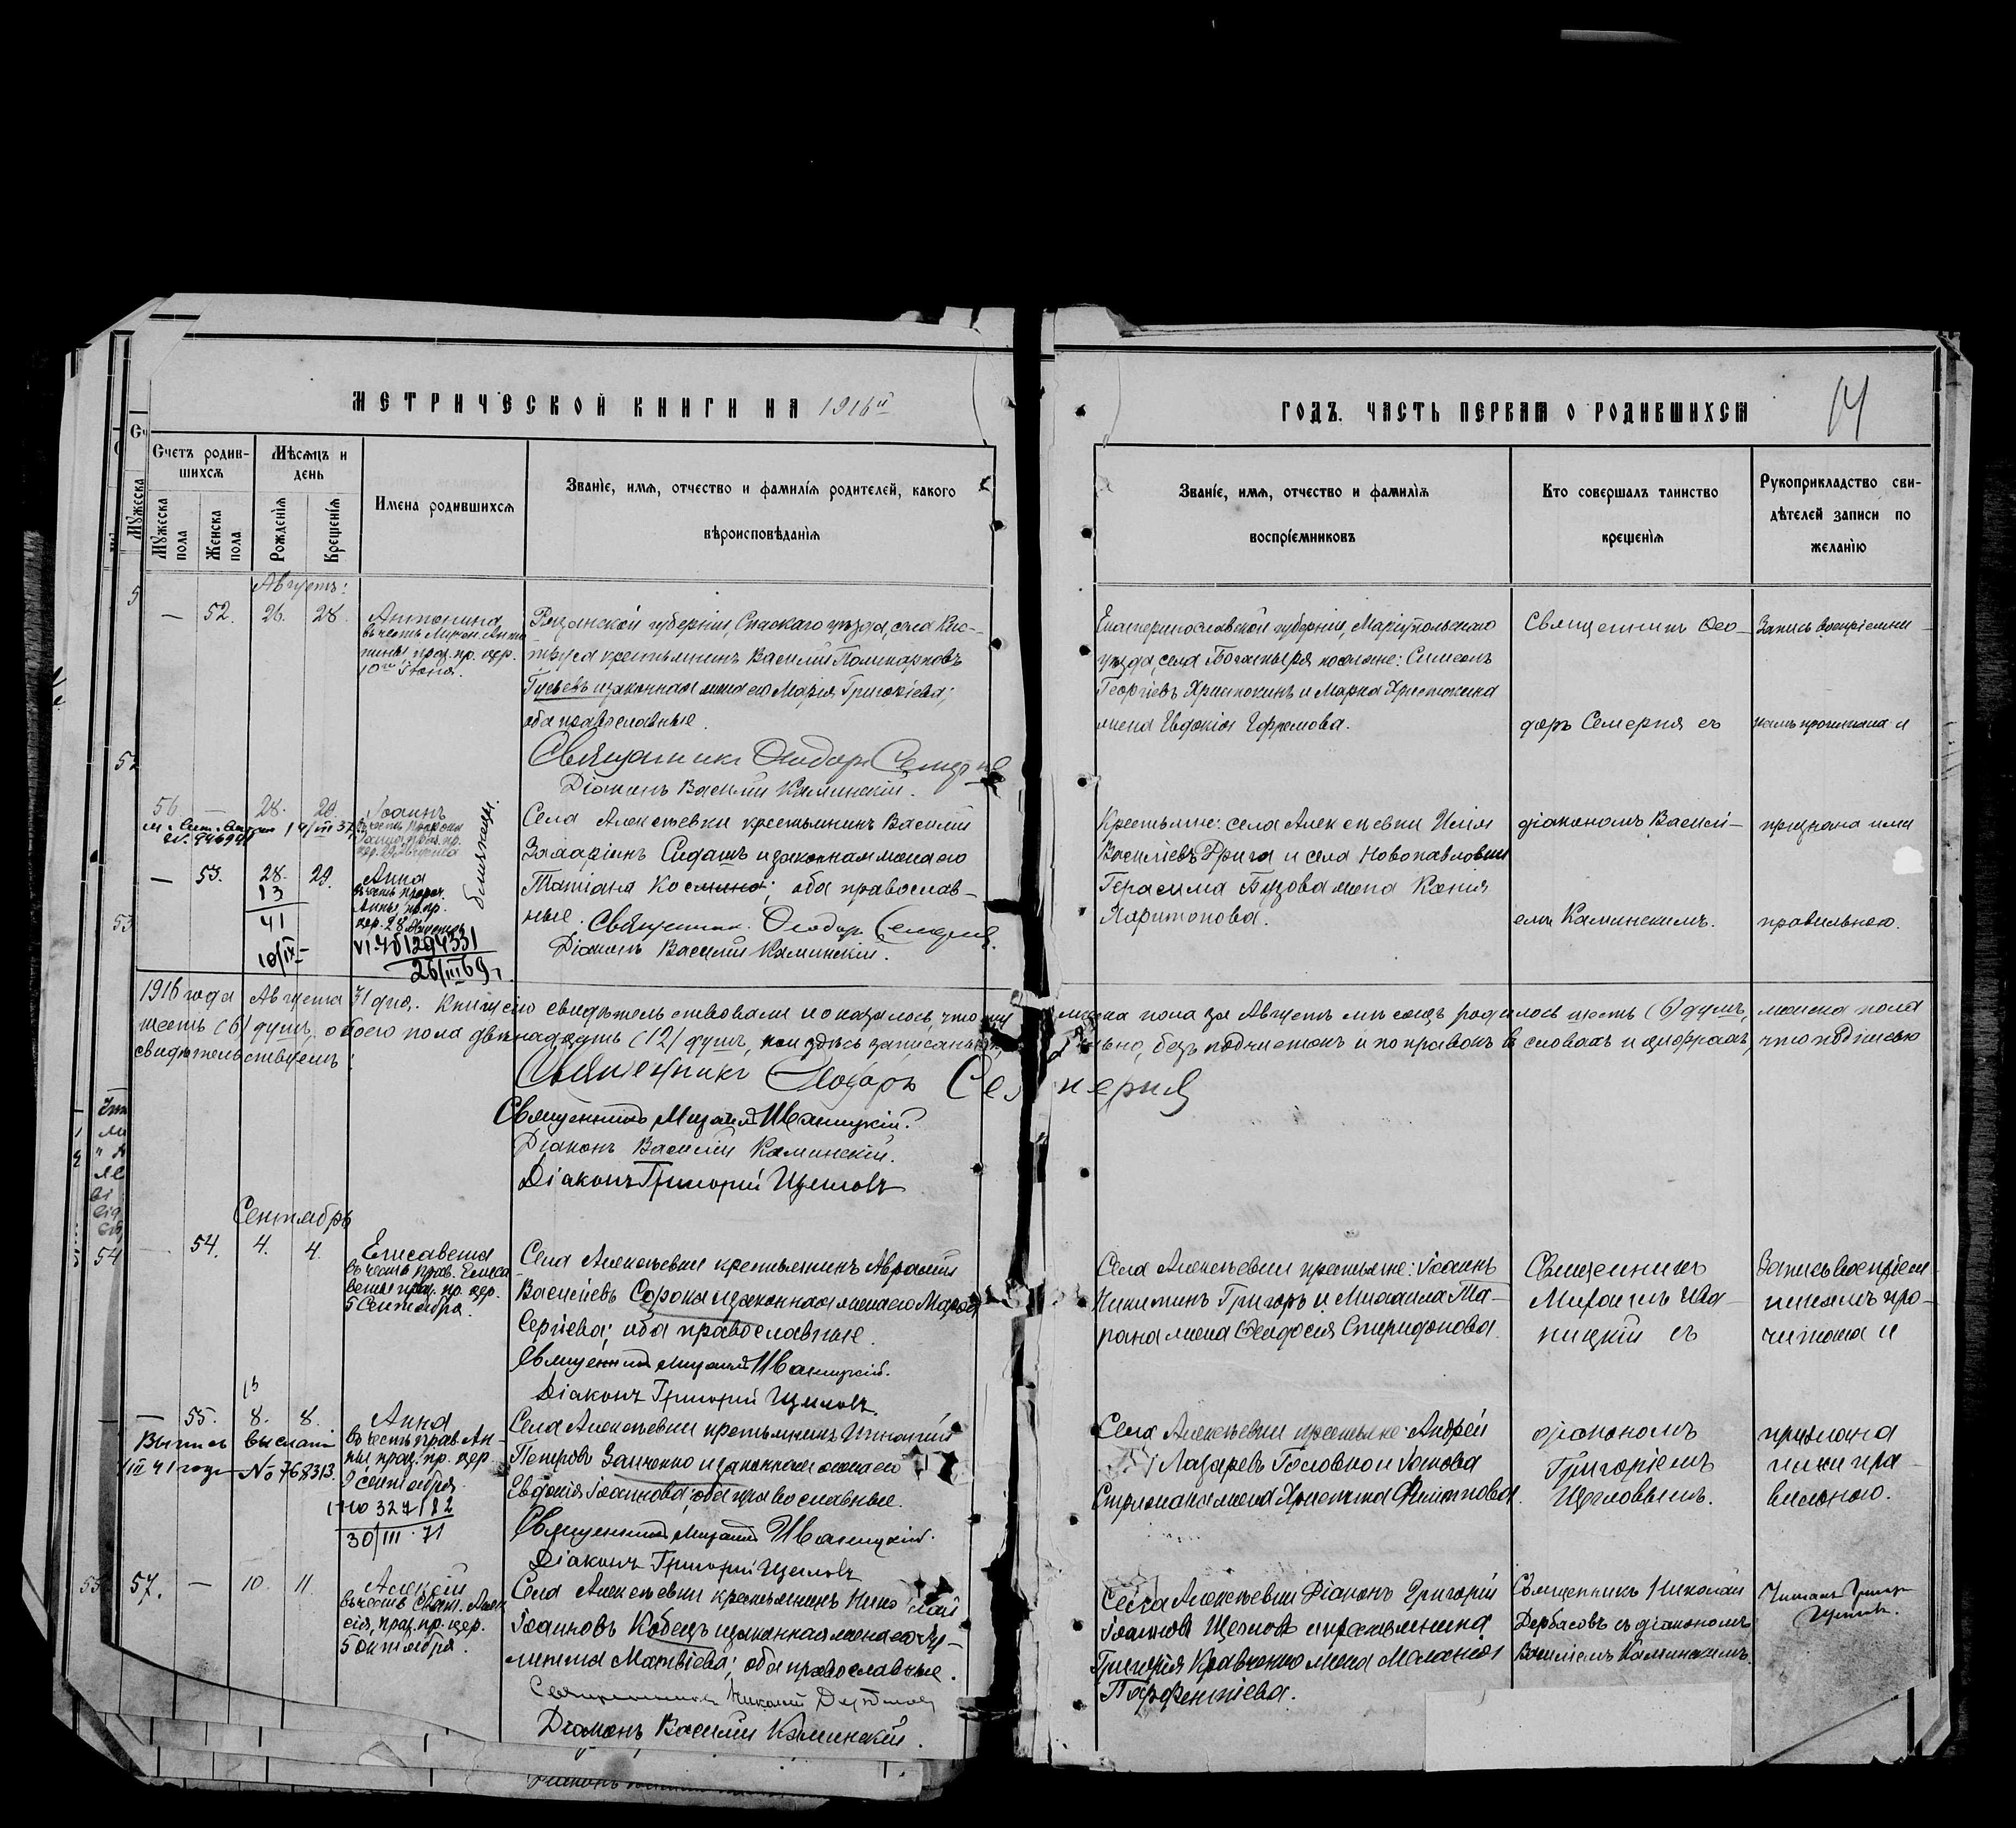 МЕТРИЧЕСКОЙ КНИГИ НА 1916й
ГОДЪ. ЧАСТЬ ПЕРВАЯ О РОДИВШИХСЯ
14
Счетъ родив-
шихся
Мужеска пола
Женска пола
Мѣсяцъ и
день
Рожденія
Крещенія
Имена родившихся
Званіе, имя, отчество и фамилія родителей, какого
вѣроисповѣданія
Званіе, имя, отчество и фамилія
воспріемниковъ
Кто совершалъ таинство
крещенія
Рукоприкладство сви-
дѣтелей записи по
желанію
Августъ:
— 52. 26. 28.
Антонина
въ честь Антo
нины прaз. пр. цер.
10го Іюня.
Рязанской губерніи, Спаскаго уѣзда, села Кис-
труса крестьянинъ Василій Поликарповъ
Гусевъ и законная жена его Марія Григоріева;
оба православные.
Священникъ Ѳеодоръ Семерня
Діаконъ Василій Каминскій.
Екатеринославской губерніи, Маріупольскаго
уѣзда, села Богатыря поселяне: Симеонъ
Георгіевъ Христокинъ и Марка Христокина
жена Евдокія Ефремова.
Священникъ Ѳео-
доръ Семерня съ
Запись воспріемни
камъ прочитана и
56. — 28. 29.
Іоаннъ
— 53. 28. 29.
Анна
близнецы.
13
41
10/IX
VI-ЯО 1294331
26/III 69 г.
Села Алексѣевки крестьянинъ Василій
Захаріинъ Сидашъ и законная жена его
Татіана Космина; оба православ-
ные. Священник. Ѳеодоръ Семерня.
Діаконъ Василій Каминскій.
Крестьяне: села Алексѣевки Илія
Василіевъ Дрига и села Новопавловки
Герасима Бузова жена Ксенія
Харитонова.
діакономъ Василі-
емъ Каминскимъ.
признана ими
правильною.
1916 года Августа 31 дня. Книгу сію свидѣтельствовали и оказалось, что муж
жеска пола за Августъ мѣсяцъ родилось шесть (6) душъ, женска пола
шесть (6) душъ, обоего пола двѣнадцать (12) душъ, кои здѣсь записаны
льно, безъ подчистокъ и поправокъ въ словахъ и цифрахъ, что подписью
свидѣтельствуемъ:
Священникъ Ѳеодоръ Семерня
Священникъ Михаилъ Иваницкій.
Діаконъ Василій Каминскій.
Діаконъ Григорій Щегловъ
Сентябрь
54. 4. 4.
Елисавета
въ честь прав. Елиса
веты праз. пр. цер.
5 Сентября.
Села Алексѣевки крестьянинъ Авраамій
Василіевъ Сорока и законная жена его Марѳа
Сергіева; оба православные.
Священникъ Михаилъ Иваницкій.
Діаконъ Григорій Щегловъ.
Села Алексѣевки крестьяне: Іоаннъ
Никитинъ Григоръ и Михаила Та-
рана жена Ѳеодосія Спиридонова.
Священникъ
Михаилъ Ива-
ницкій съ
Запись воспріем
никамъ про-
читана и
13
— 55. 8. 8.
Анна
въ честь прав. Ан-
ны праз. пр. цер.
9 сентября.
Выпись выслана
1/III 41 года No 768313.
327182
30/III 71
Села Алексѣевки крестьянинъ Игнатій
Петровъ Заиченко и законная жена его
Евдокія Іоаннова; оба православные.
Священникъ Михаилъ Иваницкій.
Діаконъ Григорій Щегловъ
Села Алексѣевки крестьяне: Андрей
Лазаревъ Головко и Іакова
жена Христина Филиппова.
діакономъ
Григоріемъ
Щегловымъ.
признана
ими пра-
вильною.
57. — 10. 11.
Алексій
въ честь Свят. Алек
сія, праз. пр. цер.
5 октября.
Села Алексѣевки крестьянинъ Николай
Іоанновъ Кобецъ и законная жена его Іу-
литта Матвіева; оба православные.
Священникъ Николай Дербасовъ
Діаконъ Василій Каминскій.
Села Алексѣевки Діаконъ Григорій
Іоанновъ Щегловъ и крестьянина
Григорія Кравченко жена Меланія
Парфентіева.
Священникъ Николай
Дербасовъ съ діакономъ
Василіемъ Каминскимъ.